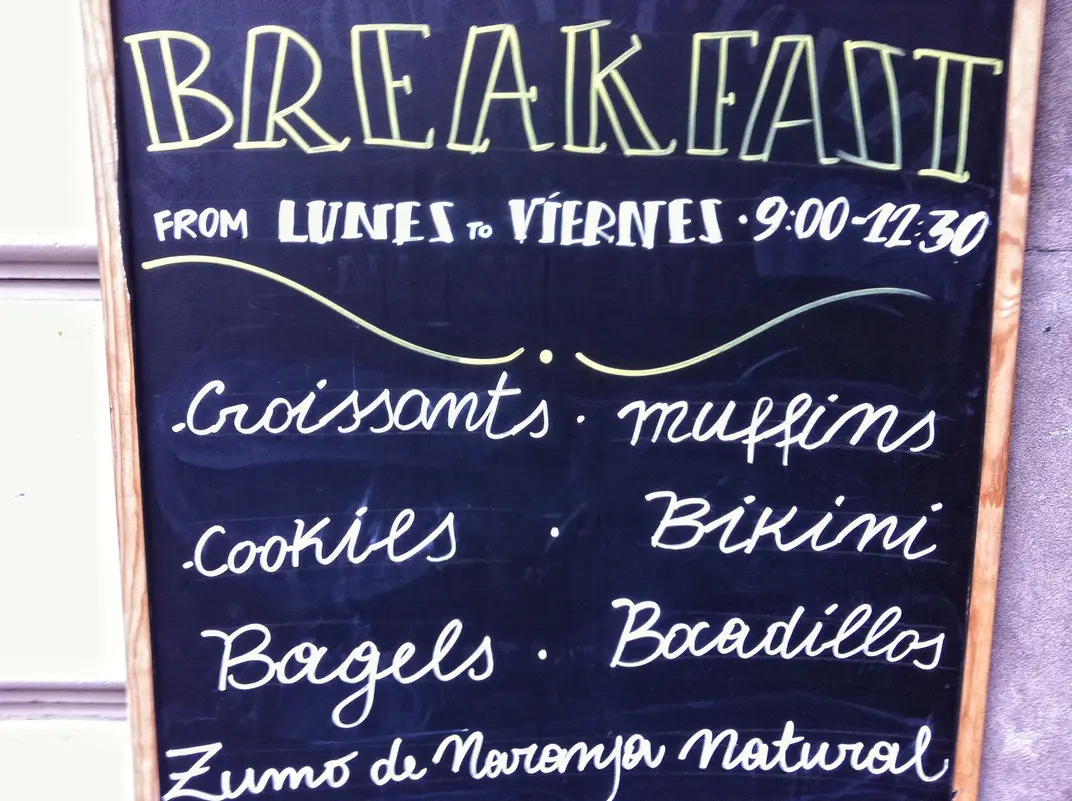 BREAKFAST
FROM LUNES TO VÍERNES · 9:00-12:30
.Croissants · muffins
.Cookies · Bikini
Bagels · Bocadillos
Zumo de Naranja Natural